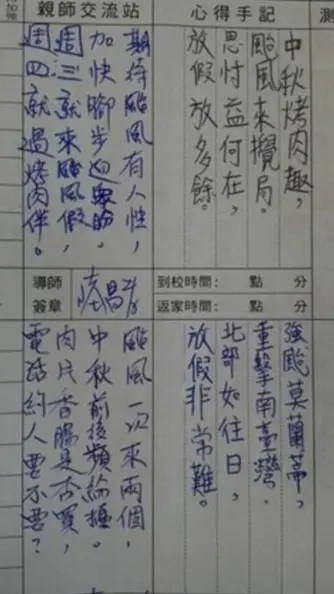 測
心得手記
中秋烤肉趣，
颱風來攪局。
思忖益何在，
放假放多餘。
親師交流站
期待颱風有人性，
加快腳步迎眾盼。
週三就來颱風假，
週四就過烤肉伴。
到校時間：　點　分
返家時間：　點　分
導師
簽章
強颱莫蘭蒂，
重擊南臺灣。
北部如往日，
放假非常難。
颱風一次來兩個，
中秋前後頻輪極。
肉片香腸是否買，
電話約人要不要？